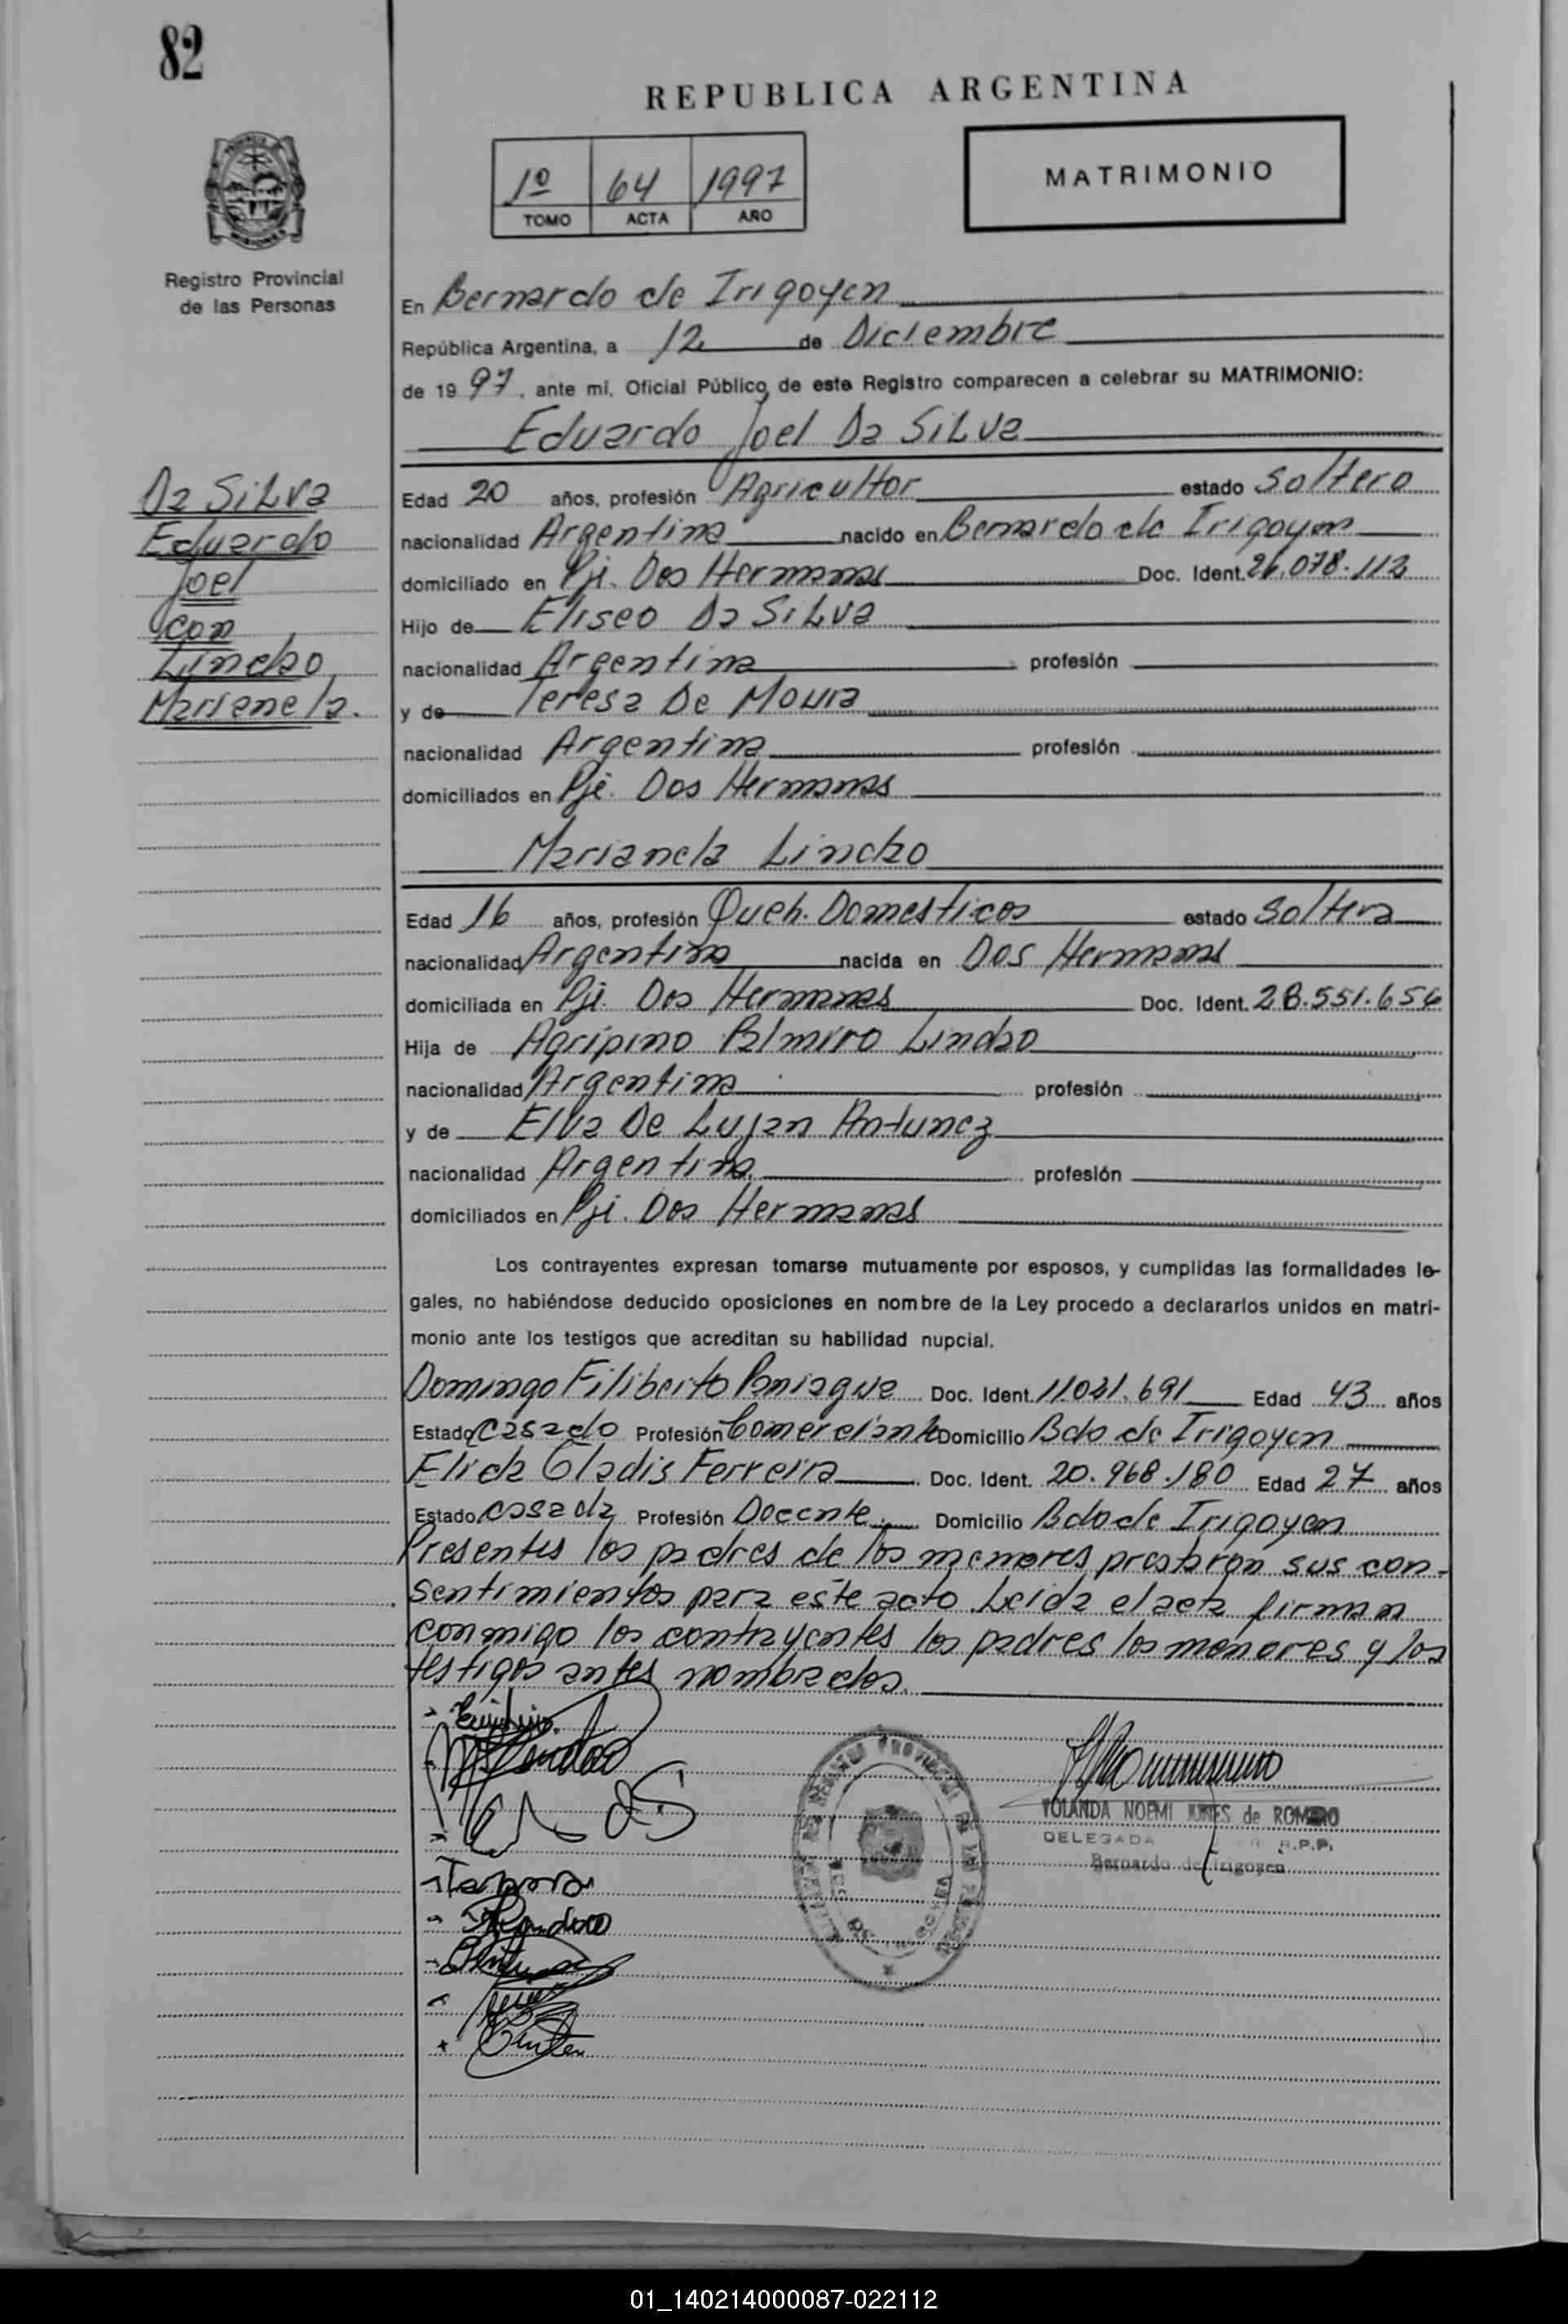 82
REPUBLICA ARGENTINA
1º 64 1997
TOMO ACTA AÑO
MATRIMONIO
Registro Provincial
de las Personas
En Bernardo de Irigoyen
República Argentina, a 12 de Diciembre
de 1997, ante mi, Oficial Público de este Registro comparecen a celebrar su MATRIMONIO:
Eduardo Joel Da Silva
Da Silva
Eduardo
Joel
con
Lindao
Marianela.
Edad 20 años, profesión Agricultor estado Soltero
nacionalidad Argentina nacido en Bernardo de Irigoyen
domiciliado en Pje. Dos Hermanas Doc. Ident. 26.078.113
Hijo de Eliseo Da Silva
nacionalidad Argentina profesión
y de Teresa De Moura
nacionalidad Argentina profesión
domiciliados en Pje. Dos Hermanas
Marianela Lindao
Edad 16 años, profesión Queh. Domesticos estado Soltera
nacionalidad Argentina nacida en Dos Hermanas
domiciliada en Pje. Dos Hermanas Doc. Ident. 28.551.654
Hija de Agripino Palmiro Lindao
nacionalidad Argentina profesión
y de Elva De Lujan Antunez
nacionalidad Argentina. profesión
domiciliados en Pje. Dos Hermanas
Los contrayentes expresan tomarse mutuamente por esposos, y cumplidas las formalidades le-
gales, no habiéndose deducido oposiciones en nombre de la Ley procedo a declararlos unidos en matri-
monio ante los testigos que acreditan su habilidad nupcial.
Domingo Filiberto Paniagua Doc. Ident. 11.021.691 Edad 43 años
Estado Casado Profesión Comerciante Domicilio Bdo de Irigoyen
Elida Gladis Ferreira Doc. Ident. 20.968.180 Edad 27 años
Estado Casada Profesión Docente Domicilio Bdo de Irigoyen
Presentes los padres de los menores prestaron sus con-
sentimientos para este acto Leida el acta firman
conmigo los contrayentes los padres los menores y los
testigos antes nombrados.
YOLANDA NOEMI de ROMERO
DELEGADA R.P.P.
Bernardo de Irigoyen
01_140214000087-022112